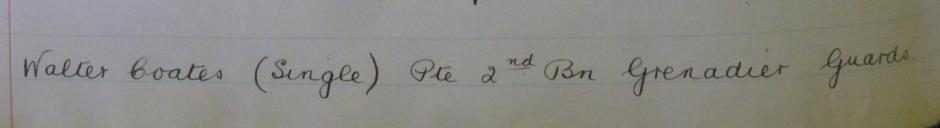 Walter Coates (Single) Pte 2nd Bn Grenadier Guards.